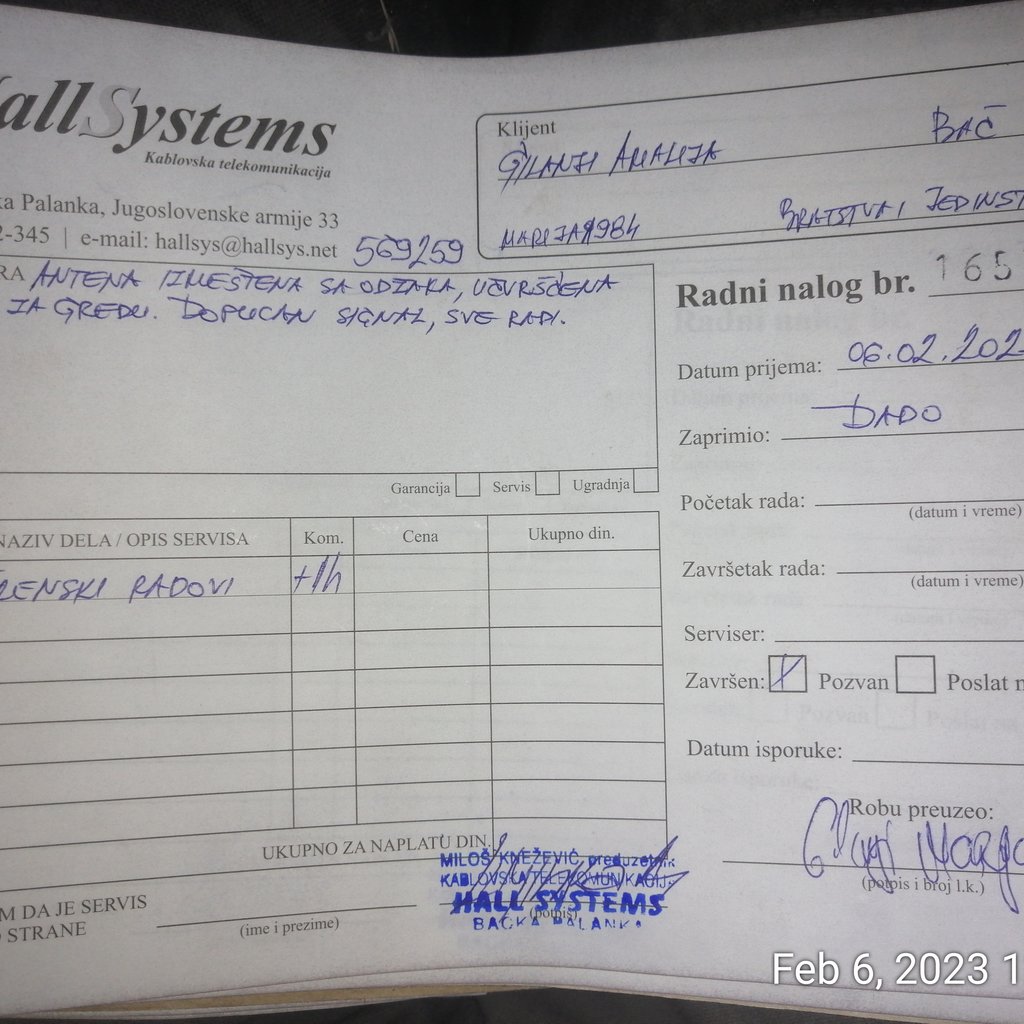 HallSystems
Kablovska telekomunikacija
ka Palanka, Jugoslovenske armije 33
2-345 | e-mail: hallsys@hallsys.net
569259
Klijent
BAČ
AMALIJA
MARIJA1984
BRATSTVA I JEDINST
RA ANTENA IZMEŠTENA SA ODZAKA, UČVRŠĆENA
ZA GREDU. DOPUCAN SIGNAL, SVE RADI.
Garancija Servis Ugradnja
Radni nalog br. 165
Datum prijema: 06.02.202
Zaprimio: DADO
Početak rada:
(datum i vreme)
Završetak rada:
(datum i vreme)
Serviser:
Završen: Pozvan Poslat n
Datum isporuke:
Robu preuzeo:
(potpis i broj l.k.)
NAZIV DELA / OPIS SERVISA Kom. Cena Ukupno din.
RENSKI RADOVI +1h
UKUPNO ZA NAPLATU DIN.
M DA JE SERVIS
O STRANE
(ime i prezime)
(potpis)
MILOŠ KNEŽEVIĆ, preduzetnik
KABLOVSKA TELEKOMUNIKACIJA
HALL SYSTEMS
BAČKA PALANKA
Feb 6, 2023 1